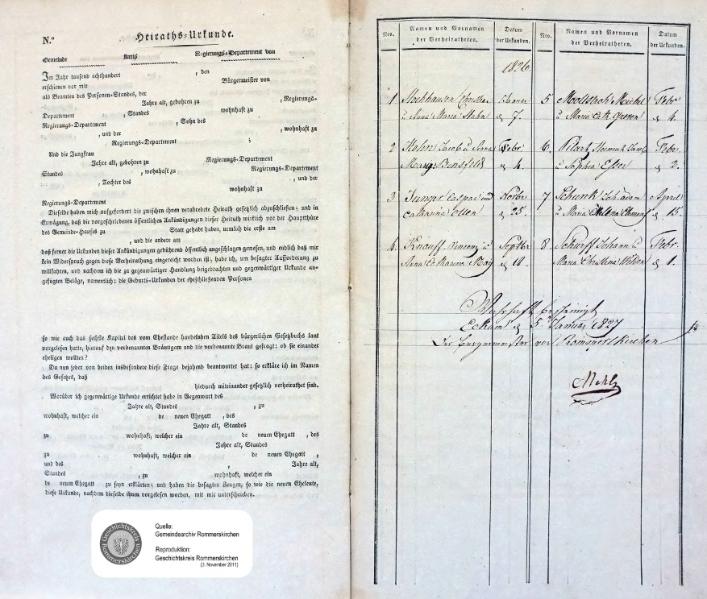 N.º
Heiraths-Urkunde.
Gemeinde Kreis Regierungs-Departement von
Im Jahr tausend achthundert , den
erschienen vor mir Bürgermeister von
als Beamten des Personen-Standes, der
Jahre alt, gebohren zu , Regierungs-
Departement Standes wohnhaft zu
Regierungs-Departement , Sohn des
, und der , wohnhaft zu
Regierungs-Departement
Und die Jungfrau
Jahre alt, gebohren zu Regierungs-Departement
Standes , wohnhaft zu Regierungs-Departement
, Tochter des , und der
wohnhaft zu
Regierungs-Departement
Dieselben haben mich aufgefordert die zwischen ihnen verabredete Heirath gesetzlich abzuschließen; und in
Erwägung, daß die vorgeschriebenen öffentlichen Ankündigungen dieser Heirath wirklich vor der Hauptthüre
des Gemeinde-Hauses zu Statt gehabt haben, nemlich die erste am
, und die andere am
das ferner die Urkunden dieser Ankündigungen gebührend öffentlich angeschlagen gewesen, und endlich daß mir
kein Widerspruch gegen diese Verheirathung eingereicht worden ist, habe ich, um besagter Aufforderung zu
willfahren, und nachdem ich die zu gegenwärtiger Handlung beigebrachten und gegenwärtiger Urkunde an-
gefügten Beläge, namentlich: die Geburts-Urkunden der eheschließenden Personen
so wie auch das sechste Kapitel des vom Ehestande handelnden Titels des bürgerlichen Gesetzbuchs laut
vorgelesen hatte, hierauf den vernannten Bräutigam und die vernannte Braut gefragt: ob sie einander
ehelichen wollten?
Da nun jeder von beiden insbesondere diese Frage bejahend beantwortet hat: so erkläre ich im Namen
des Gesetzes, daß
hierdurch miteinander gesetzlich verheirathet sind.
Worüber ich gegenwärtige Urkunde errichtet habe in Gegenwart des
Jahre alt, Standes , zu
wohnhaft, welcher ein de neuen Ehegatt , des
Jahre alt, Standes
zu wohnhaft, welcher ein de neuen Ehegatt , des
Jahre alt, Standes
zu wohnhaft, welcher ein de neuen Ehegatt ,
und des , Jahre alt,
Standes , zu wohnhaft, welcher ein
de neuen Ehegatt zu seyn erklärten; und haben die besagten Zeugen, so wie die neuen Eheleute,
diese Urkunde, nachdem dieselbe ihnen vorgelesen worden, mit mir unterschrieben.
Quelle:
Gemeindearchiv Rommerskirchen
Reproduktion:
Geschichtskreis Rommerskirchen
(3. November 2011)
Nro. Namen und Vornamen der Verheiratheten. Datum der Urkunden. Nro. Namen und Vornamen der Verheiratheten. Datum der Urkunden.
1826
1 Anna Maria Hahn 7.
5 Michel Febr
& Maria 4.
2 Hahn Jacob u Anna Febr
Marg. Bensfeld 4.
6 Febr
& Sophia Esser 2.
3 Junger Caspar und Novbr
Catharina Olten 25.
7 Schunk Joh. Adam April
& Maria 15.
4 Knauff Septbr
Anna Catharina May 11.
8 Schorff Johann u Febr.
Maria Christina 1.
Eckum d 5t Januar 1827
Der Bürgermeister von Rommerskirchen